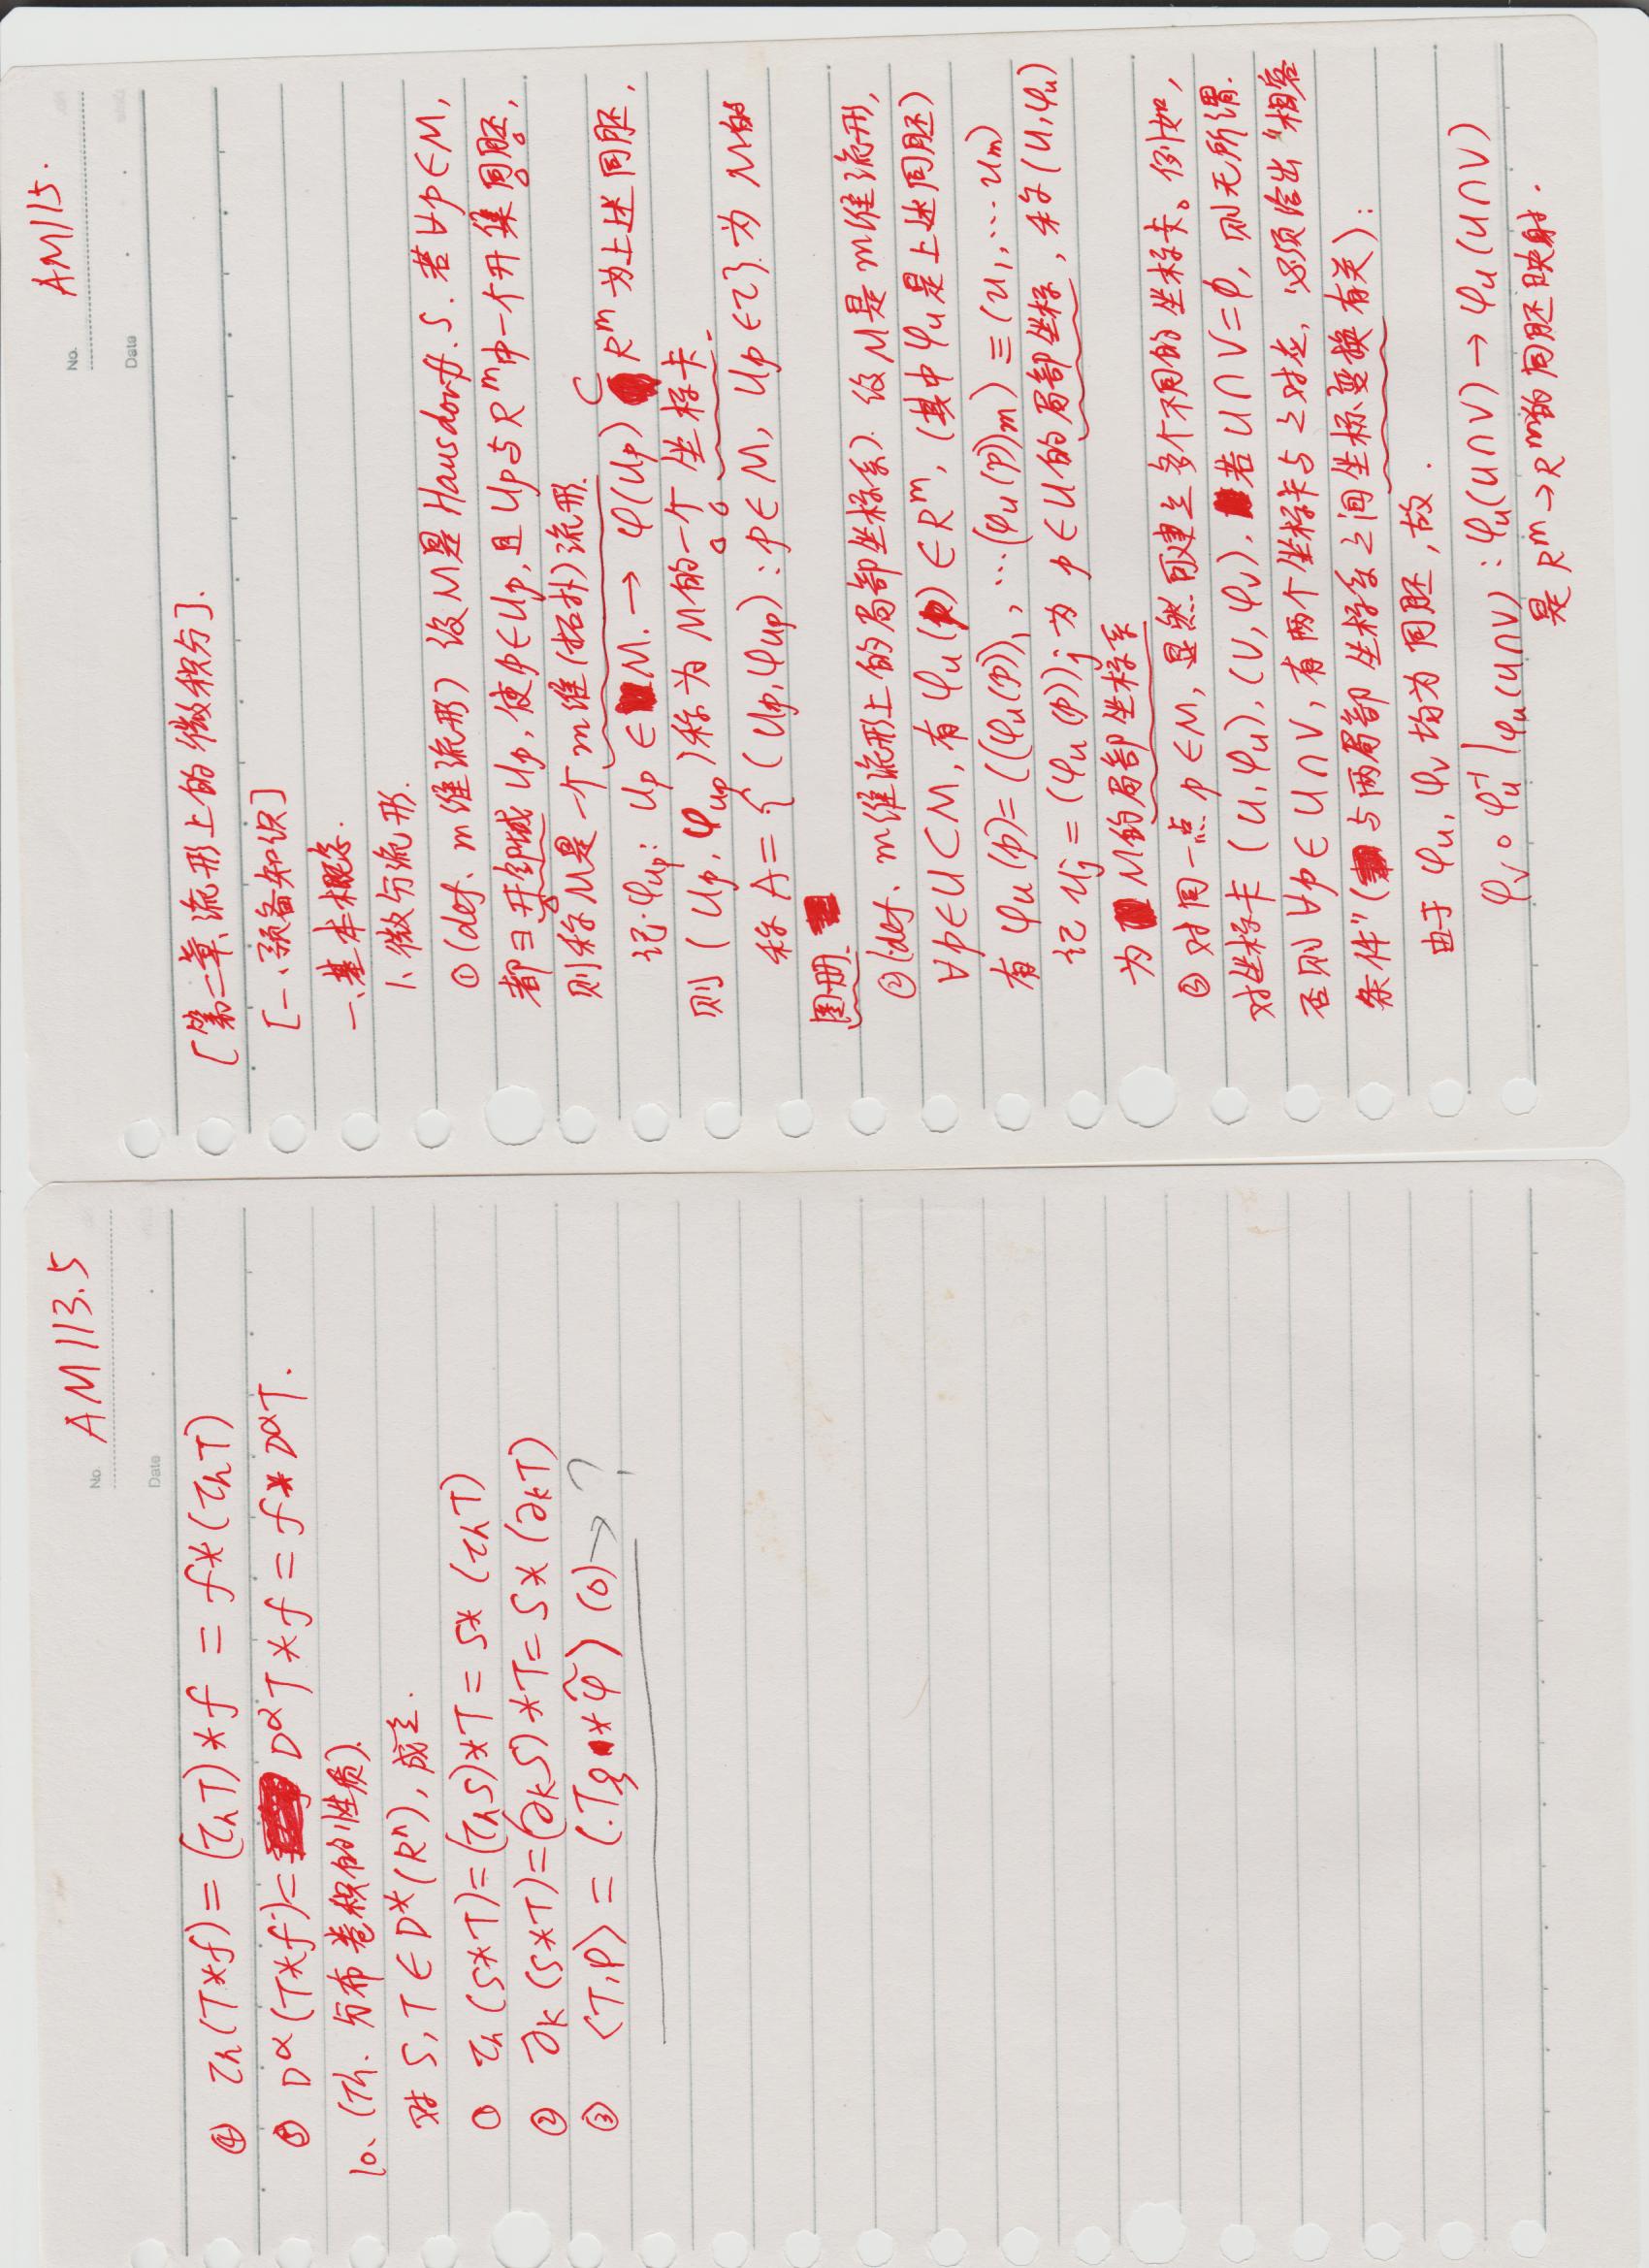 No. AM113.5
Date
④ τh(T*f)=(τhT)*f = f*(τhT)
⑤ D^α(T*f)= D^αT*f = f*D^αT.
10、(Th. 分布卷积的性质).
对 S,T∈D*(R^n), 成立.
① τh(S*T)=(τhS)*T= S*(τhT)
② ∂k(S*T)=(∂kS)*T= S*(∂kT)
③ ⟨T,φ⟩ = (T * φ̃)(0) → ?
No. AM115.
Date
[第二章、流形上的微积分].
[一、预备知识]
一、基本概念.
1、微分流形.
①(def. m维流形) 设M是Hausdorff.S. 若∀p∈M,
都∃开邻域 Up, 使p∈Up, 且Up与R^m中一个开集同胚,
则称M是一个m维(拓扑)流形.
记φ_Up: Up ∈ M. → φ(Up) ⊂ R^m 为上述同胚,
则 (Up, φ_Up)称为M的一个 坐标卡.
称 A={(Up,φ_Up):p∈M, Up∈τ}为 M的
图册.
②(def. m维流形上的局部坐标系). 设M是m维流形,
∀p∈U⊂M, 有 φ_U(p)∈R^m, (其中φ_U是上述同胚)
有 φ_U(p)=((φ_U(p))_1, …(φ_U(p))_m)≡(u_1,…u_m)
记 u_j=(φ_U(p))_j为 p∈U的局部坐标, 称(U,φ_U)
为 M的局部坐标系
③ 对同一点p∈M, 显然可建立多个不同的坐标卡。例如,
对坐标卡 (U,φ_U), (V,φ_V), 若U∩V=∅, 则无所谓.
否则 ∀p∈U∩V, 有两个坐标卡与之对应, 必须给出“相容
条件”(与两局部坐标系之间坐标变换有关):
由于 φ_U, φ_V 均为同胚, 故.
φ_V∘φ_U^-1|φ_U(U∩V) : φ_U(U∩V) → φ_U(U∩V)
是R^m→R^m的同胚映射.